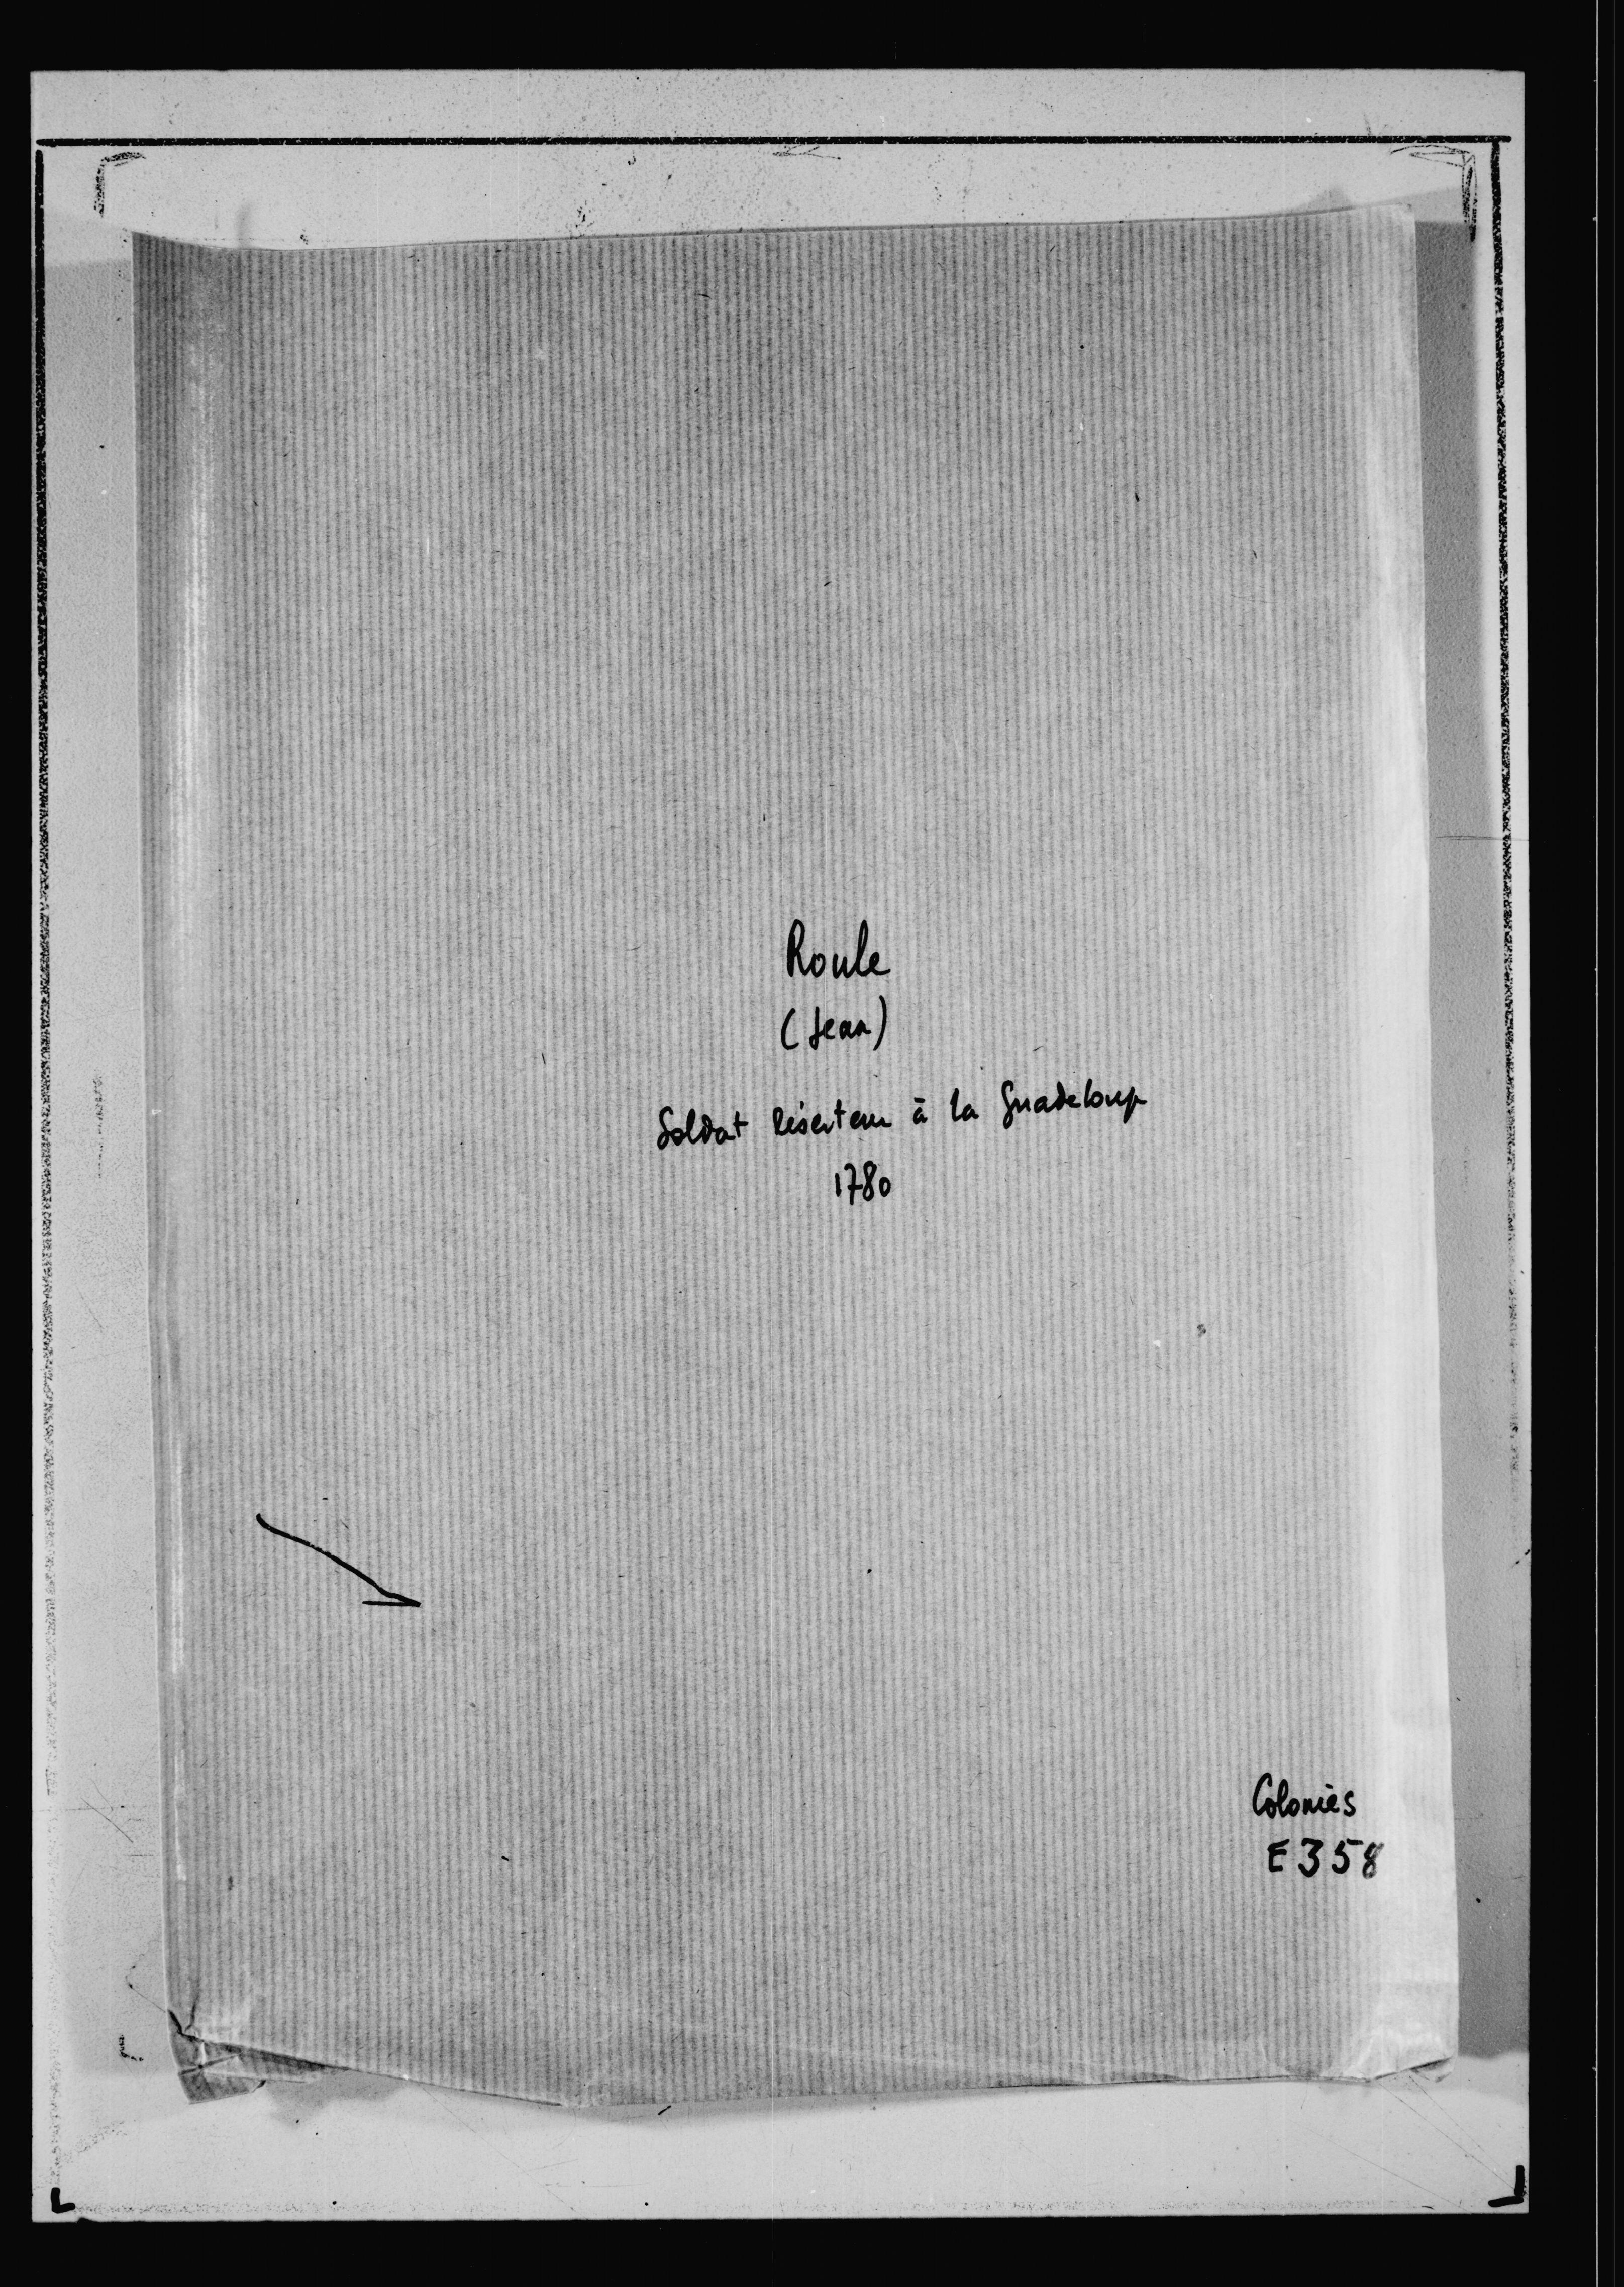 Roule
(Jean)
Soldat déserteur à la Guadeloupe
1780
Colonies
E 358